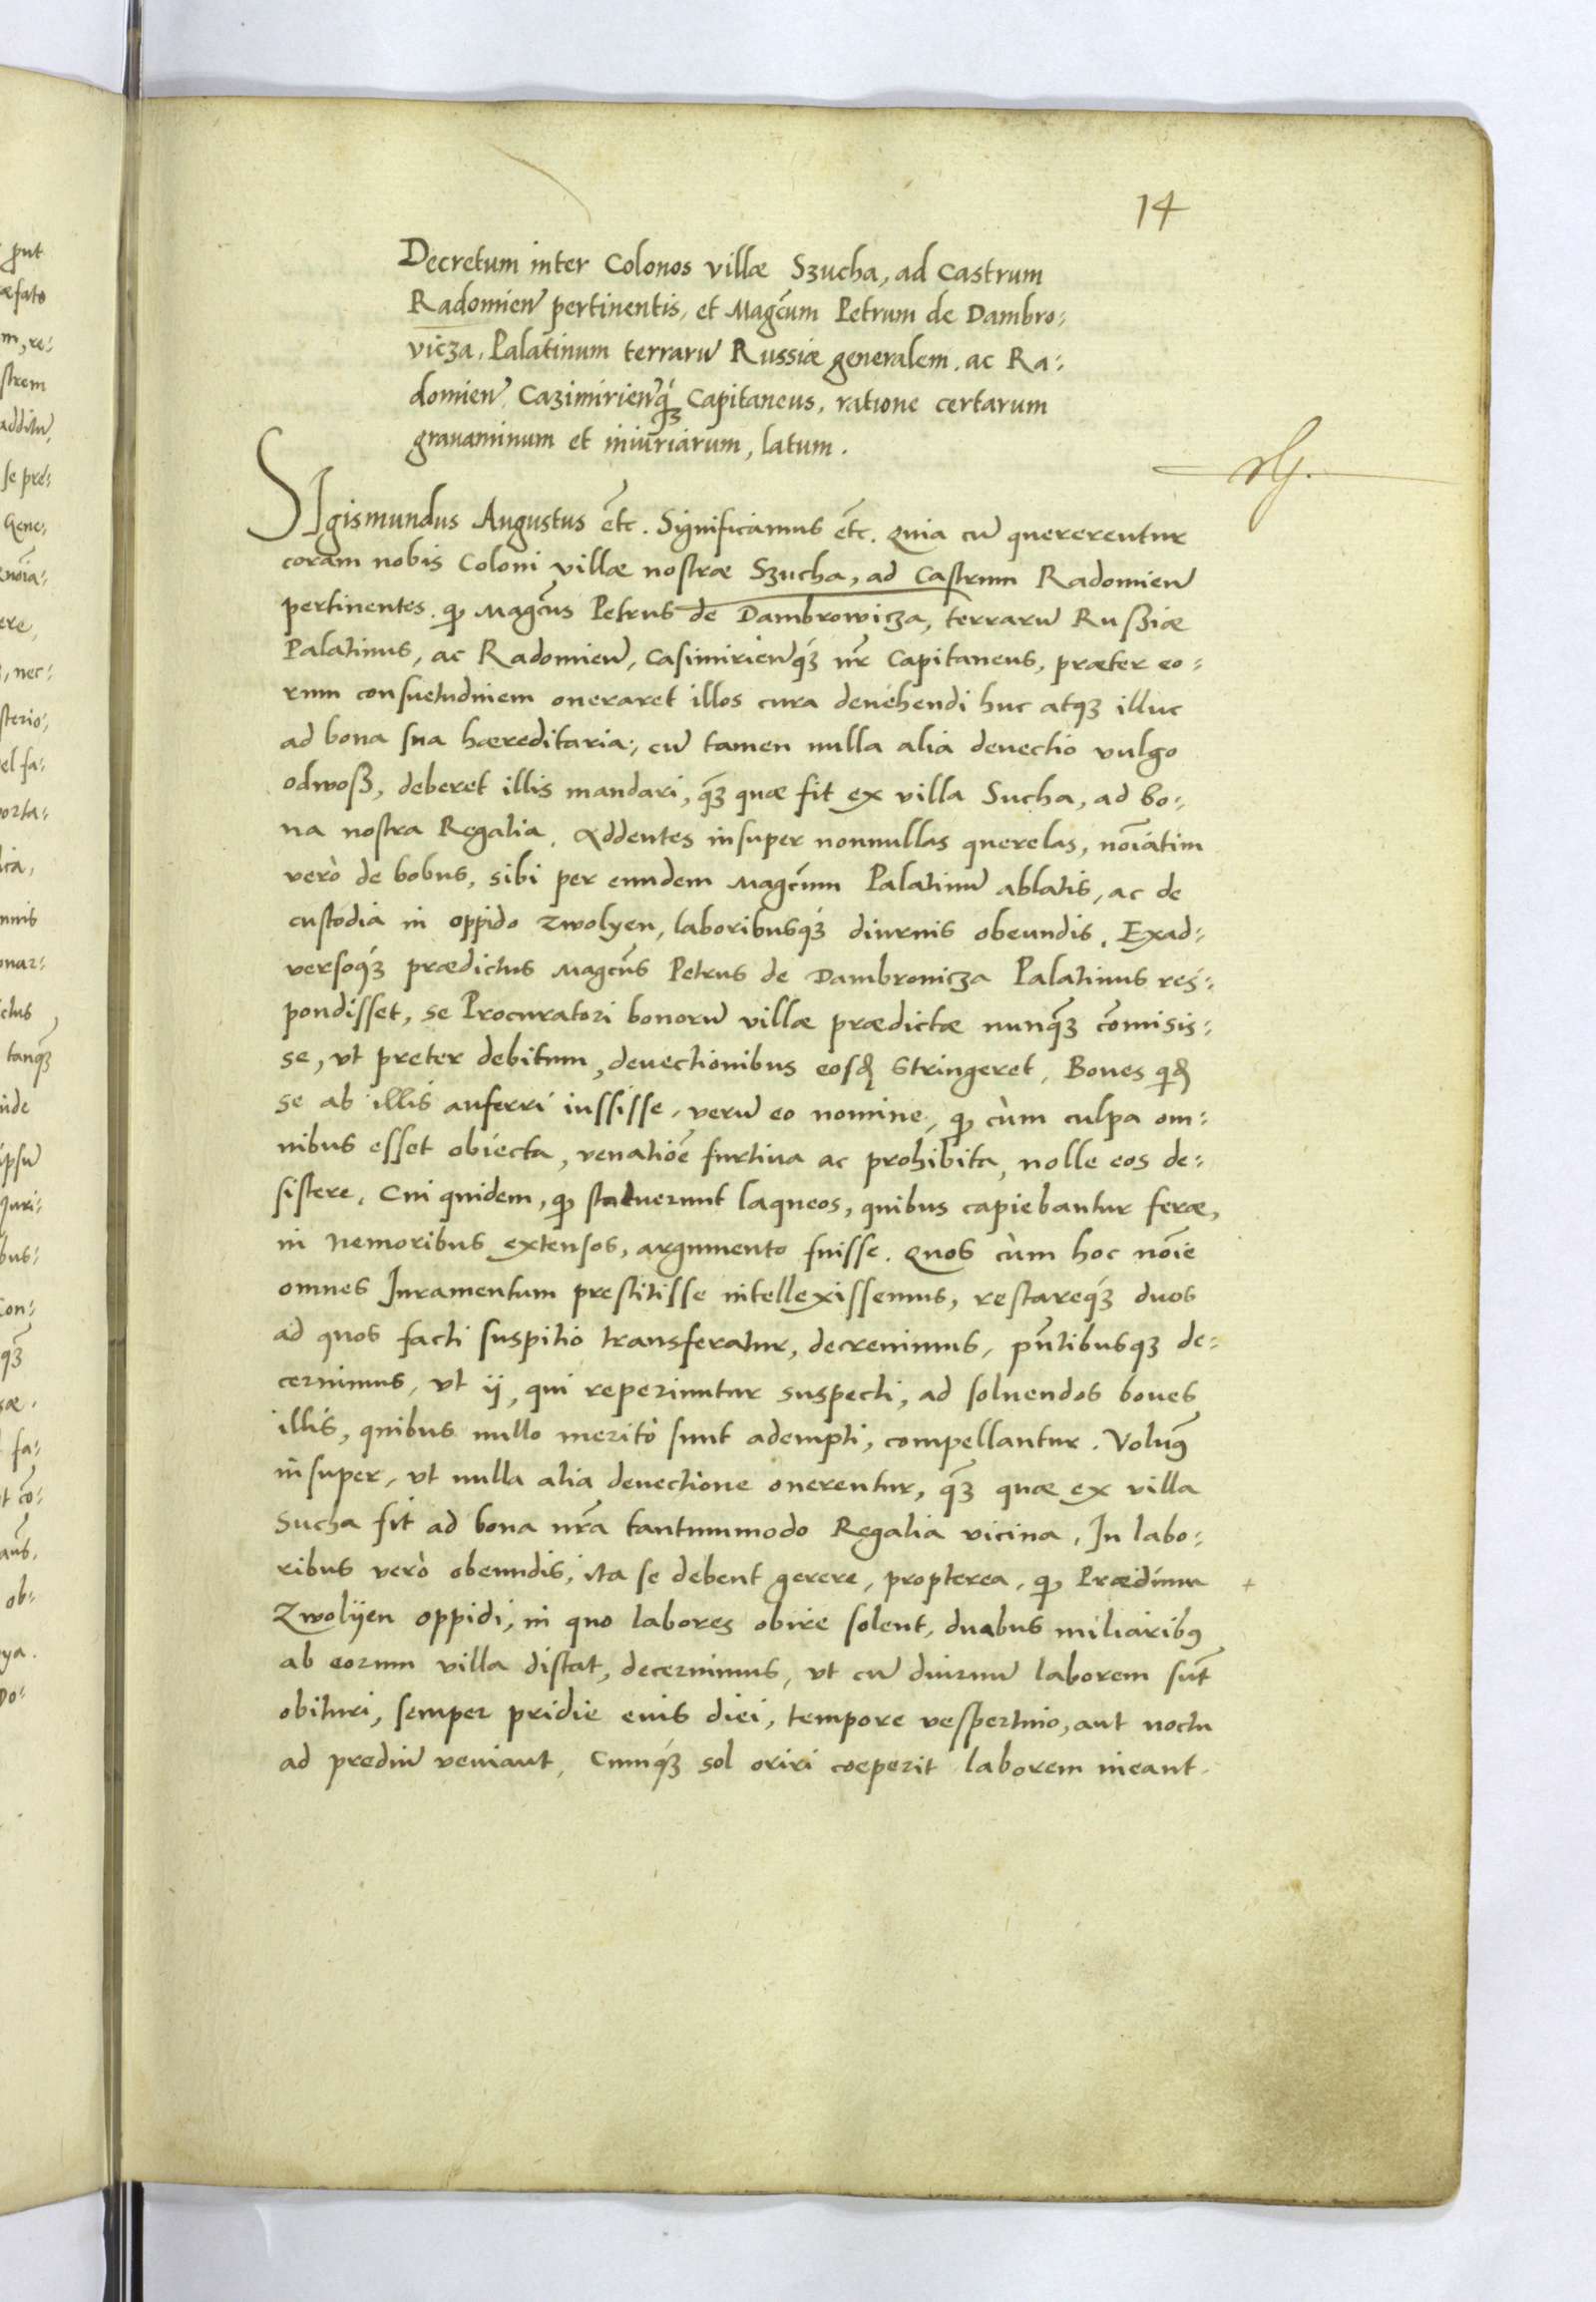 14
Decretum inter Colonos villæ Szucha, ad Castrum
Radomień pertinentis, et Magcūm Petrum de Dambro:
vicza, Palatinum terrarū Russiæ generalem, ac Ra:
domień Cazimirień q́ꝫ Capitaneus, ratione certarum
grauaminum et iniuriarum, latum.
SIgismundus Augustus etc̄. Significamus etc̄. Quia cū quererentur
coram nobis Coloni villæ nostræ Szucha, ad Castrum Radomień
pertinentes, ꝙ Magcūs Petrus de Dambrowicza, terrarū Rusziæ
Palatinus, ac Radomień, Casimirieńq́ꝫ nr̄ Capitaneus, præter eo:
rum consuetudinem oneraret illos cura deuehendi huc atqꝫ illuc
ad bona sua hæreditaria, cū tamen nulla alia deuectio vulgo
odwoß, deberet illis mandari, q̄ꝫ quæ fit ex villa Sucha, ad bo:
na nostra Regalia. Addentes insuper nonnullas querelas, noīatim
verò de bobus, sibi per eundem Magcūm Palatinū ablatis, ac de
custodia in oppido Zwolyen, laboribusq́ꝫ diurnis obeundis. Exad:
versoq́ꝫ prædictus Magcūs Petrus de Dambrouicza Palatinus res:
pondisset, se Procuratori bonorū villæ prædictæ nunq̄ꝫ com̄isis:
se, vt preter debitum, deuectionibus eosd̄ stringeret. Boues qid̄
se ab illis auferri iussisse, verū eo nomine, ꝙ cùm culpa om:
nibus esset obiecta, venatiōe furtiua ac prohibita, nolle eos de:
sistere. Cui quidem, ꝙ statuerunt laqueos, quibus capiebantur feræ,
in nemoribus extensos, argumento fuisse. Quos cùm hoc noīe
omnes Iuramentum prestitisse intellexissemus, restareq́ꝫ duos
ad quos facti suspitio transferatur, decreuimus, pn̄tibusqꝫ de:
cernimus, vt ij, qui reperiuntur suspecti, ad soluendos boues
illis, quibus nullo meritò sunt adempti, compellantur. Voluꝰ
insuper, vt nulla alia deuectione onerentur, q̄ꝫ quæ ex villa
Sucha fit ad bona nr̄a tantummodo Regalia vicina. In labo:
ribus verò obeundis, ita se debent gerere, propterea, ꝙ Prædium +
Zwolyen oppidi, in quo labores obire solent, duabus miliaribꝰ
ab eorum villa distat, decernimus, vt cū diurnū laborem sūt
obituri, semper pridie euis diei, tempore vespertino, aut noctu
ad prediū veniant, Cumq́ꝫ sol oriri cœperit laborem ineant.